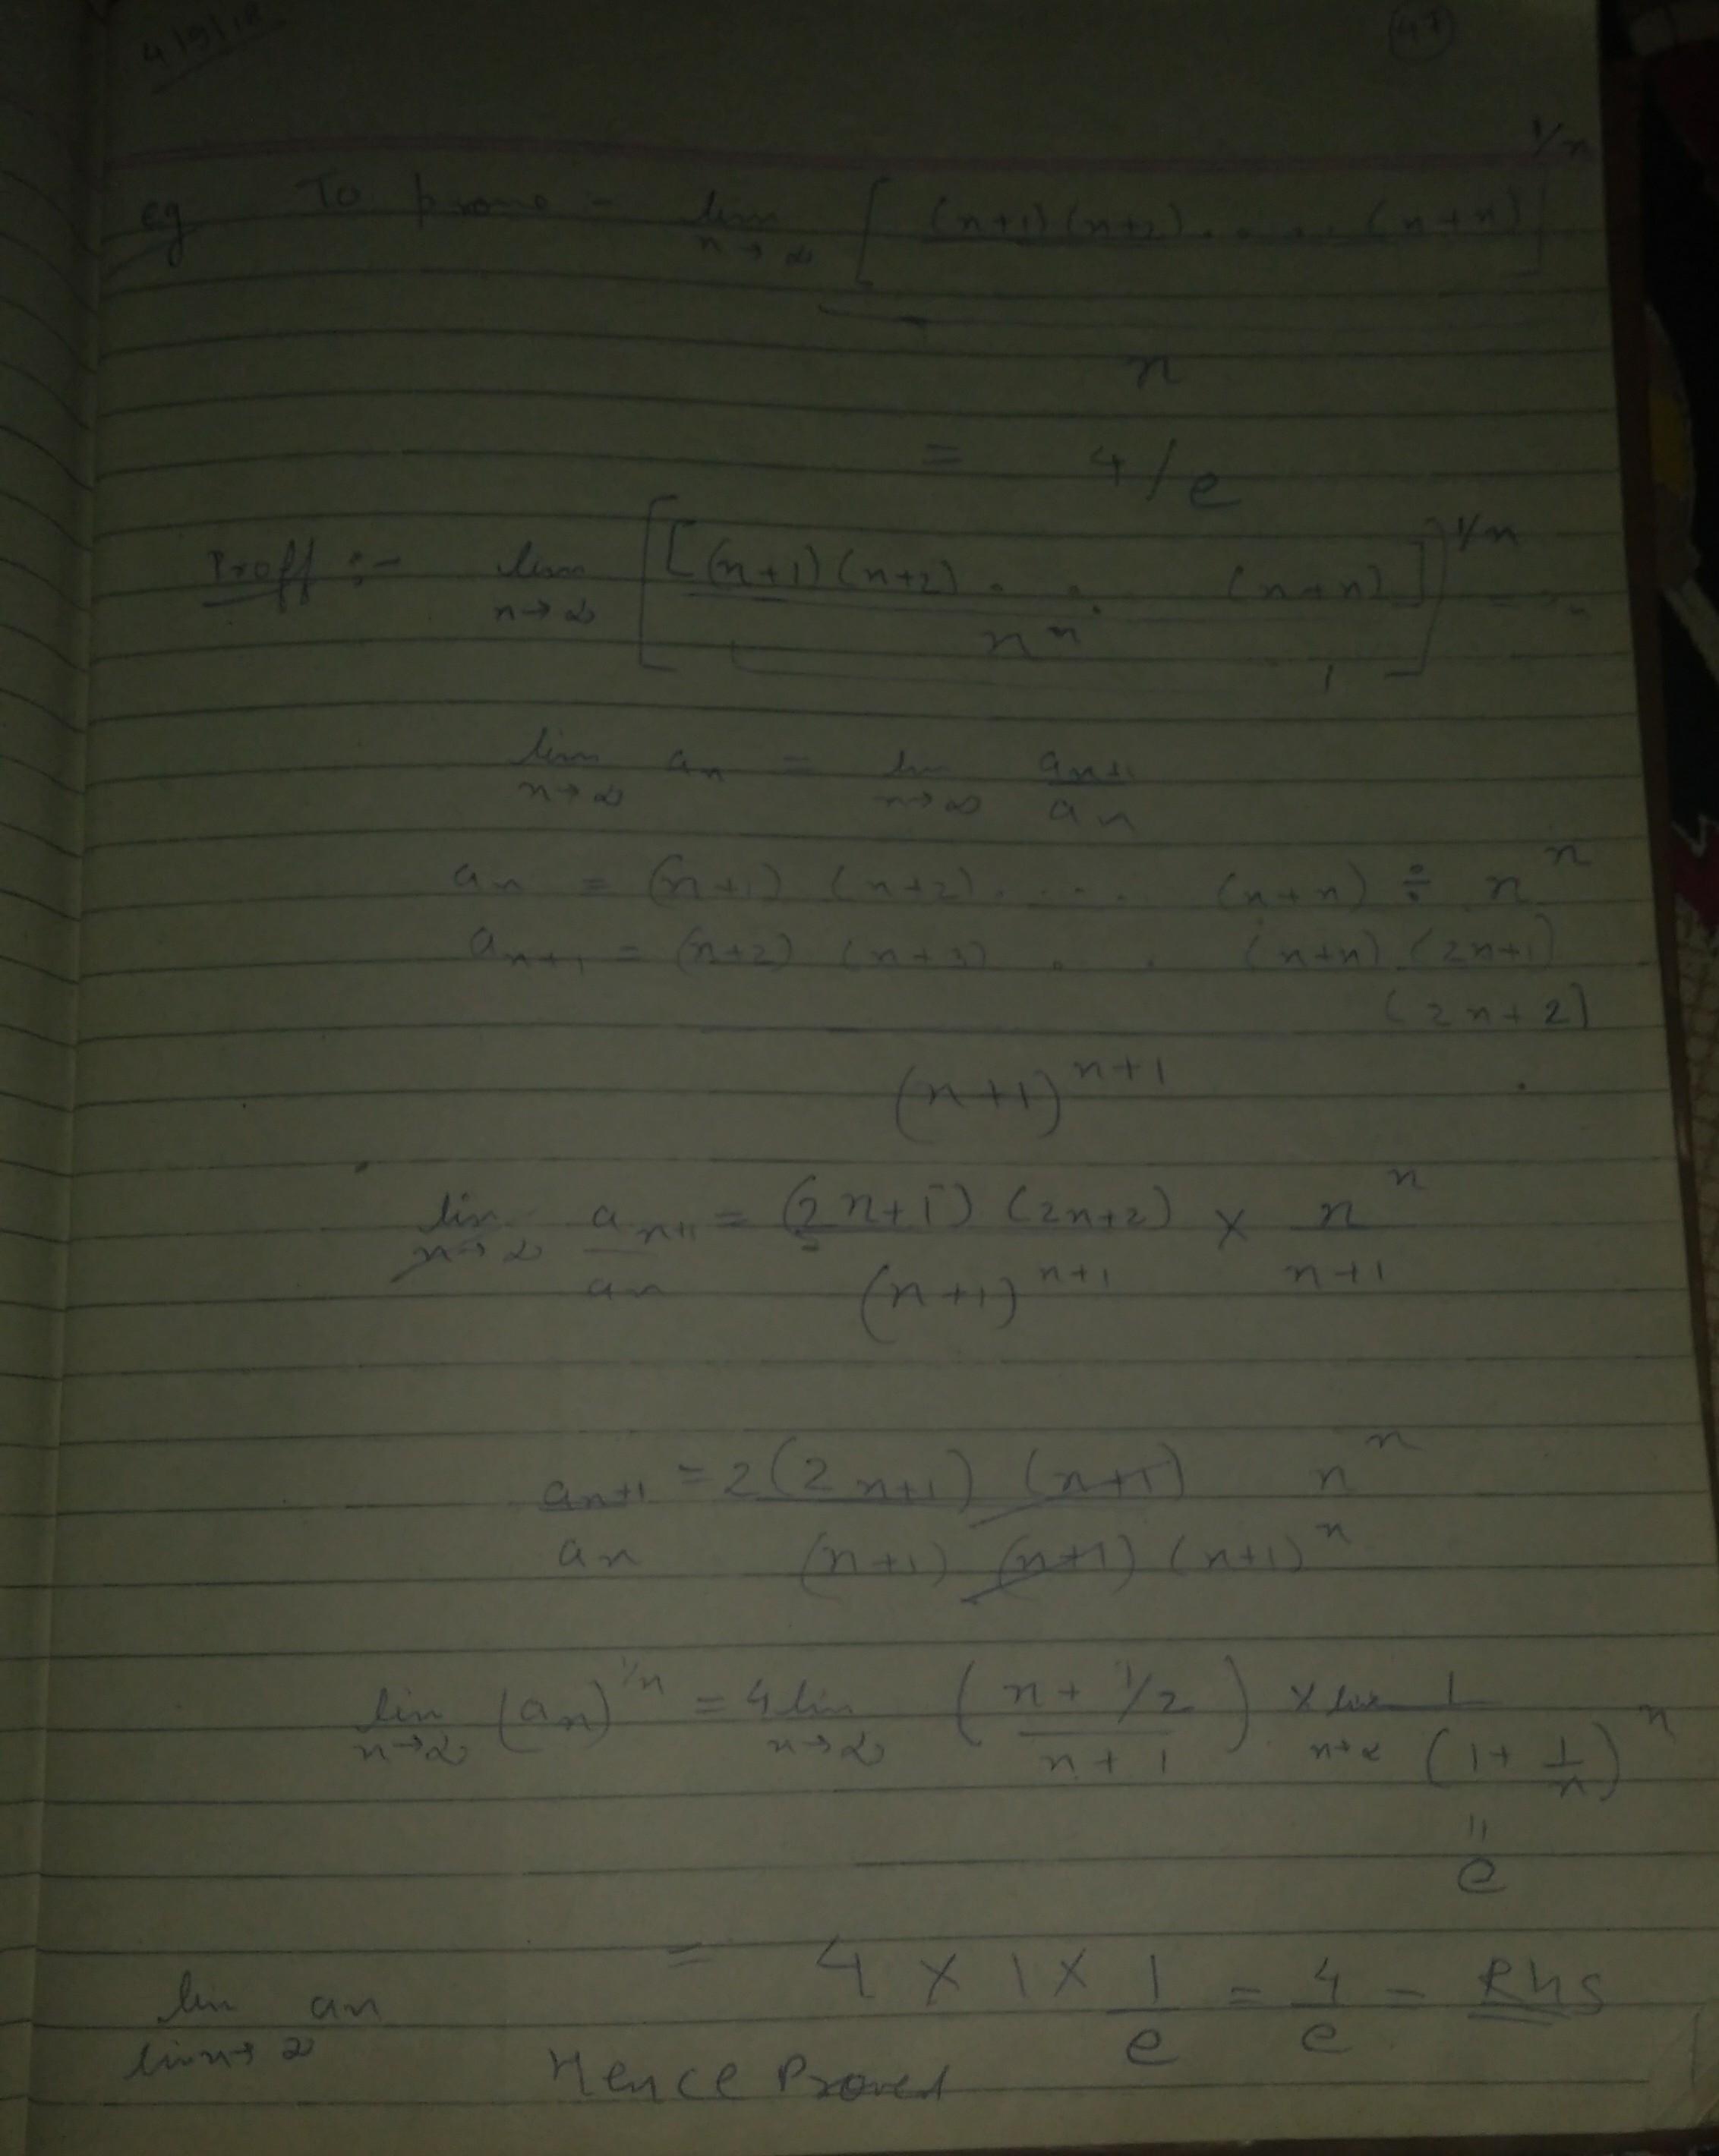 4/9/18
47
eg To prove :- lim n→∞ [ (n+1)(n+2) . . . . (n+n) ]^1/n
n
= 4/e
Proff :- lim n→∞ [ [(n+1)(n+2) . . . (n+n)] / n^n ]^1/n
lim n→∞ an = lim n→∞ an+1 / an
an = (n+1) (n+2) . . . . (n+n) ÷ n^n
an+1 = (n+2) (n+3) . . (n+n) (2n+1)
(2n+2)
(n+1)^n+1
lim n→∞ an+1 / an = (2n+1) (2n+2) / (n+1)^n+1 × n^n / n+1
an+1 / an = 2(2n+1) (n+1) n^n / (n+1) (n+1) (n+1)^n
lim n→∞ (an)^1/n = 4 lim n→∞ ( n + 1/2 / n + 1 ) × lim n→∞ 1 / (1 + 1/n)^n
=
e
= 4 × 1 × 1/e = 4/e = RHS
lim an
lim n→∞
Hence Proved